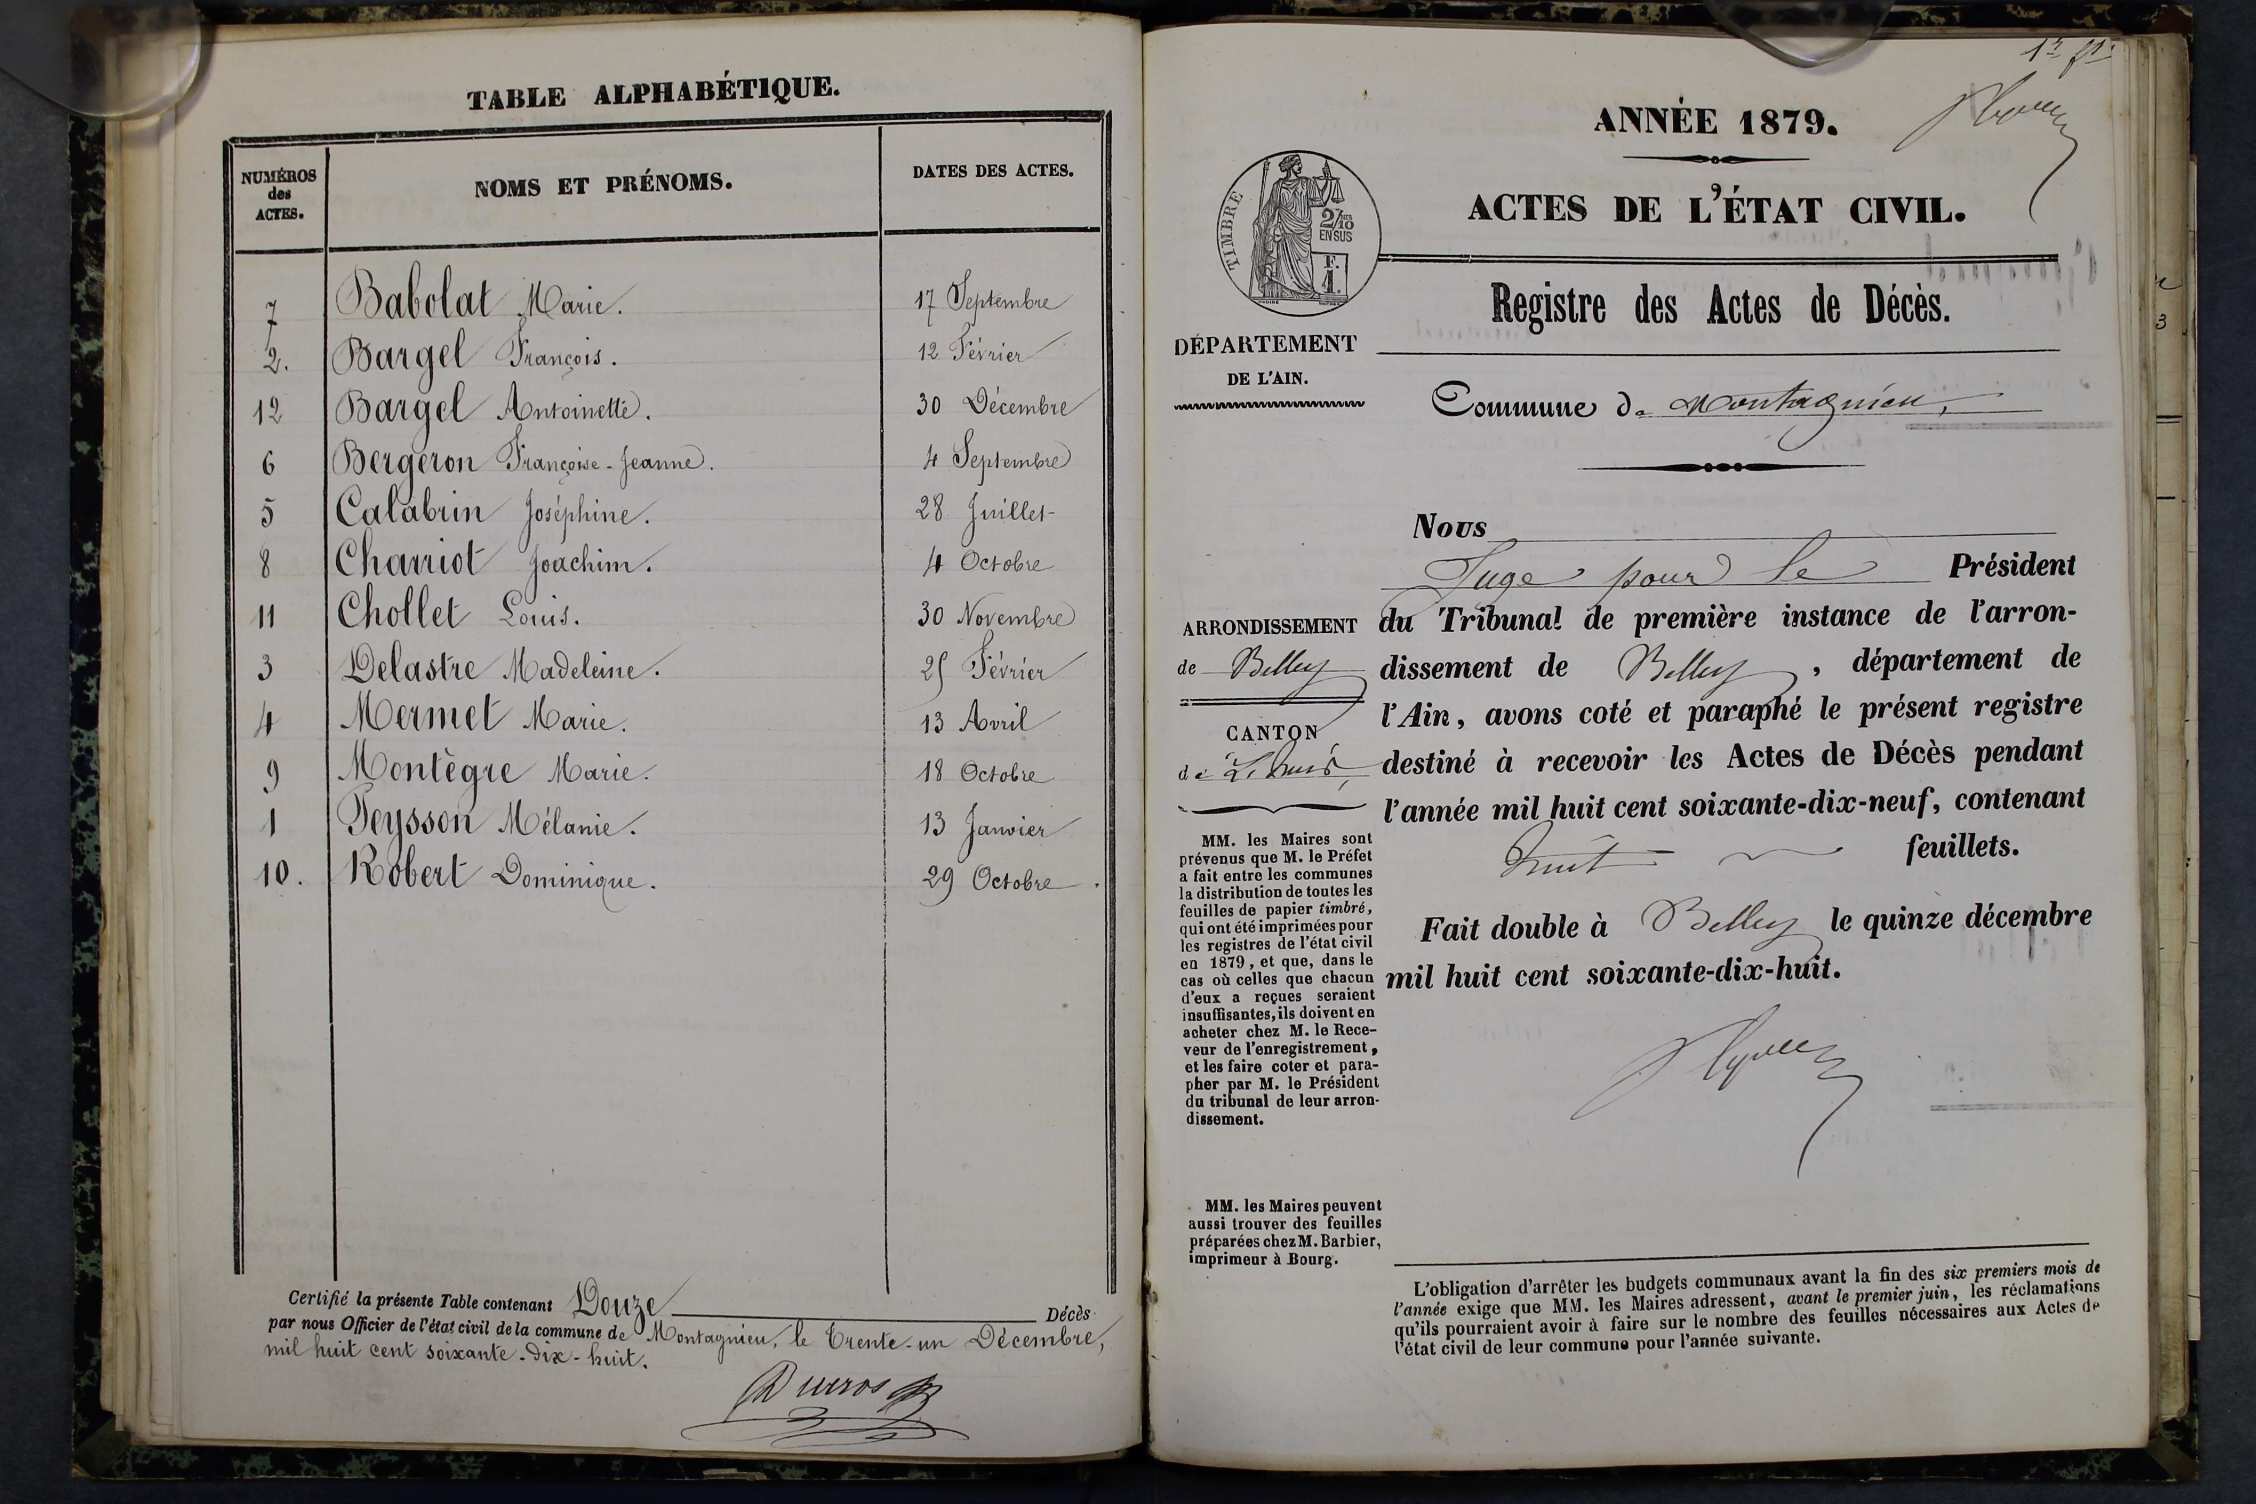 TABLE ALPHABÉTIQUE.
NUMÉROS des ACTES.
NOMS ET PRÉNOMS.
DATES DES ACTES.
7 Babolat Marie. 17 Septembre
2. Bargel François. 12 Février
12 Bargel Antoinette. 30 Décembre
6 Bergeron Françoise-Jeanne. 4 Septembre
5 Calabrin Joséphine. 28 Juillet
8 Charriot Joachim. 4 Octobre
11 Chollet Louis. 30 Novembre
3 Delastre Madeleine. 25 Février
4 Mermet Marie. 13 Avril
9 Montègre Marie. 18 Octobre
1 Peysson Mélanie. 13 Janvier
10. Robert Dominique. 29 Octobre.
Certifié la présente Table contenant Douze Décès
par nous Officier de l'état civil de la commune de Montagnieu, le Trente-un Décembre,
mil huit cent soixante-dix-huit.
ANNÉE 1879.
ACTES DE L'ÉTAT CIVIL.
TIMBRE
2/10
EN SUS
F.
1.
Registre des Actes de Décès.
DÉPARTEMENT
DE L'AIN.
Commune de Montagnieu,
Nous
Juge pour le Président
du Tribunal de première instance de l'arron-
dissement de Belley, département de
l'Ain, avons coté et paraphé le présent registre
destiné à recevoir les Actes de Décès pendant
l'année mil huit cent soixante-dix-neuf, contenant
huit feuillets.
Fait double à Belley le quinze décembre
mil huit cent soixante-dix-huit.
ARRONDISSEMENT
de Belley
CANTON
de Lhuis,
MM. les Maires sont
prévenus que M. le Préfet
a fait entre les communes
la distribution de toutes les
feuilles de papier timbré,
qui ont été imprimées pour
les registres de l'état civil
en 1879, et que, dans le
cas où celles que chacun
d'eux a reçues seraient
insuffisantes, ils doivent en
acheter chez M. le Rece-
veur de l'enregistrement,
et les faire coter et para-
pher par M. le Président
du tribunal de leur arron-
dissement.
MM. les Maires peuvent
aussi trouver des feuilles
préparées chez M. Barbier,
imprimeur à Bourg.
L'obligation d'arrêter les budgets communaux avant la fin des six premiers mois de
l'année exige que MM. les Maires adressent, avant le premier juin, les réclamations
qu'ils pourraient avoir à faire sur le nombre des feuilles nécessaires aux Actes de
l'état civil de leur commune pour l'année suivante.